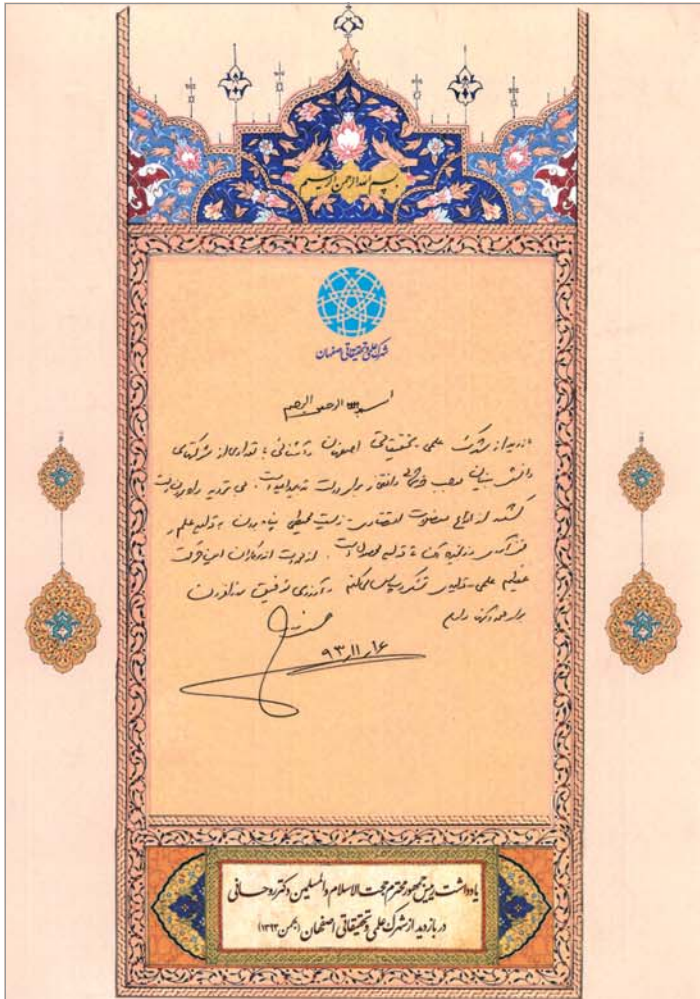 بسم الله الرحمن الرحیم
شهرک علمی و تحقیقاتی اصفهان
بسم الله الرحمن الرحیم
بازدید از شهرک علمی تحقیقاتی اصفهان و آشنائی با تعدادی از شرکتهای
دانش بنیان موجب خوشحالی و افتخار برای دولت تدبیر و امید است. بی تردید راه برون رفت
کشور از انواع معضلات اقتصادی - زیست محیطی پناه بردن به تولید علم و
فن آوری و زنجیره آن تا تولید محصول است. از دست اندرکاران این حرکت
عظیم علمی - تولیدی تشکر و سپاس میکنم و آرزوی توفیق روزافزون
برای همه آنان دارم
۹۳,۱۱,۱۶
یادداشت رییس جمهور محترم حجت الاسلام والمسلمین دکتر روحانی
در بازدید از شهرک علمی و تحقیقاتی اصفهان (بهمن ۱۳۹۳)